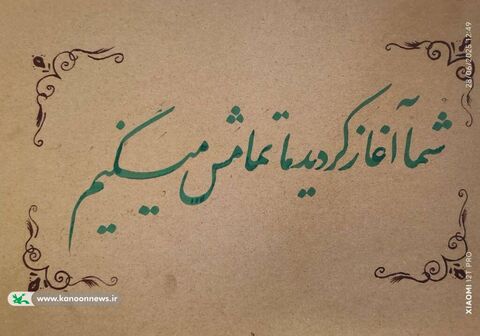 شما آغاز کردید ما تمامش میکنیم
28/06/2025 12:49
XIAOMI 12T PRO
www.kanoonnews.ir